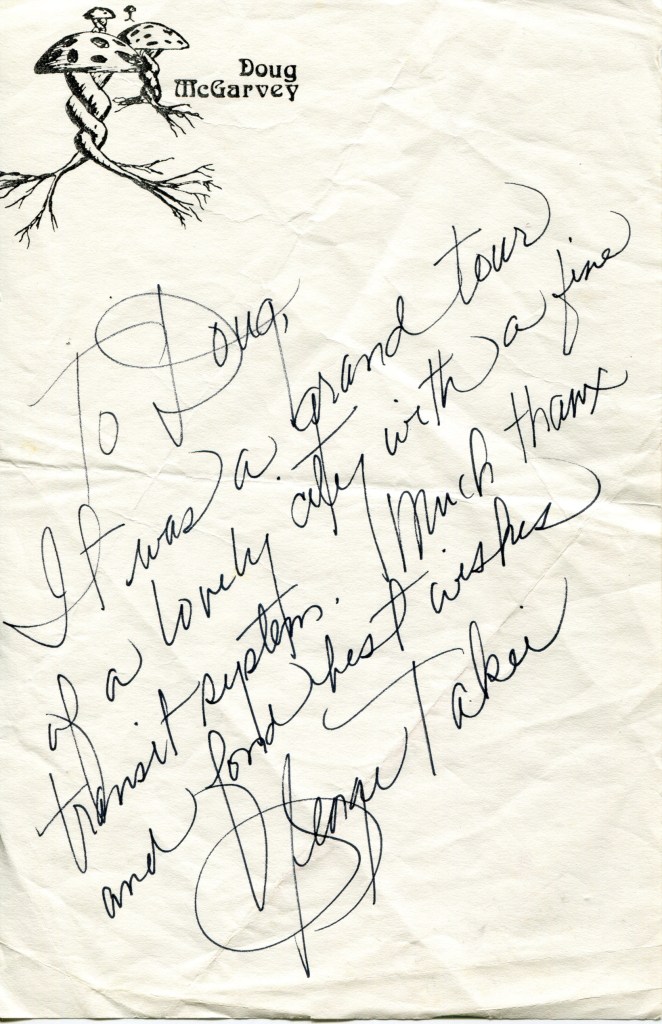 Doug
McGarvey
To Doug,
It was a grand tour
of a lovely city with a fine
transit system. Much thanx
and fond best wishes
George Takei